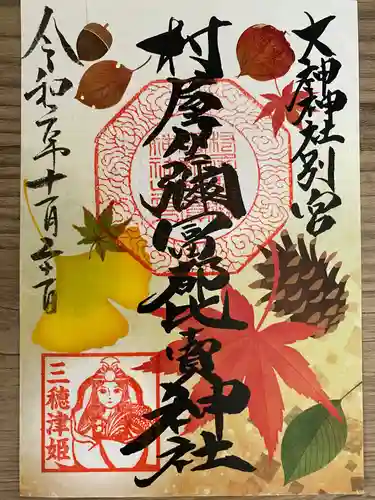 大神神社別宮
村屋坐彌冨都比賣神社
令和二年十一月二十一日
三穂津姫